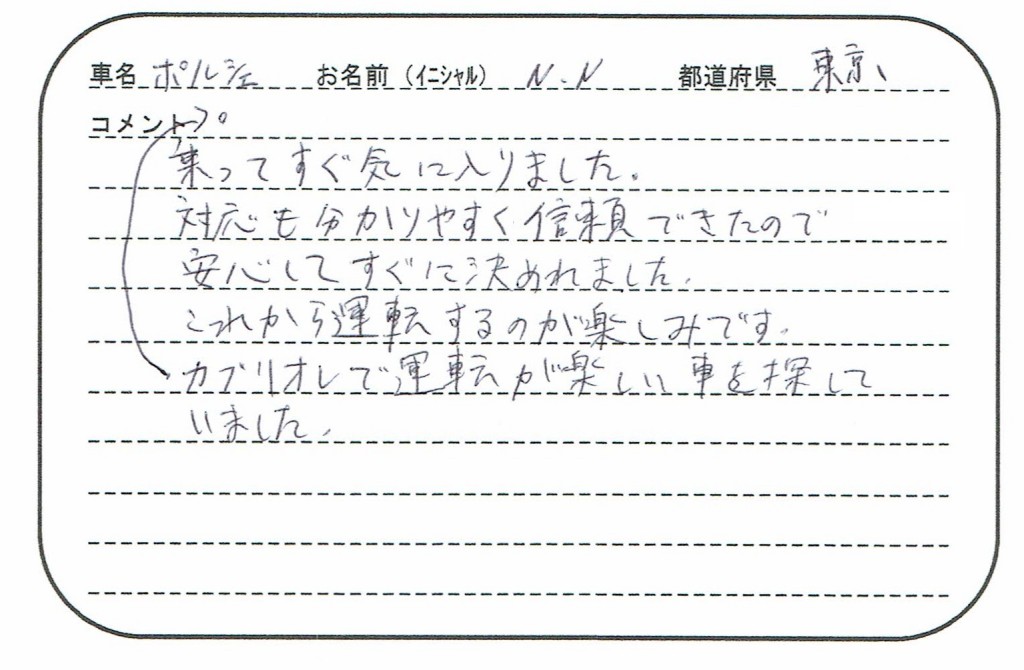 車名 ポルシェ お名前（イニシャル） N.N 都道府県 東京
コメント
乗ってすぐ気に入りました。
対応も分かりやすく信頼できたので
安心してすぐに決めれました。
これから運転するのが楽しみです。
カブリオレで運転が楽しい車を探して
いました。